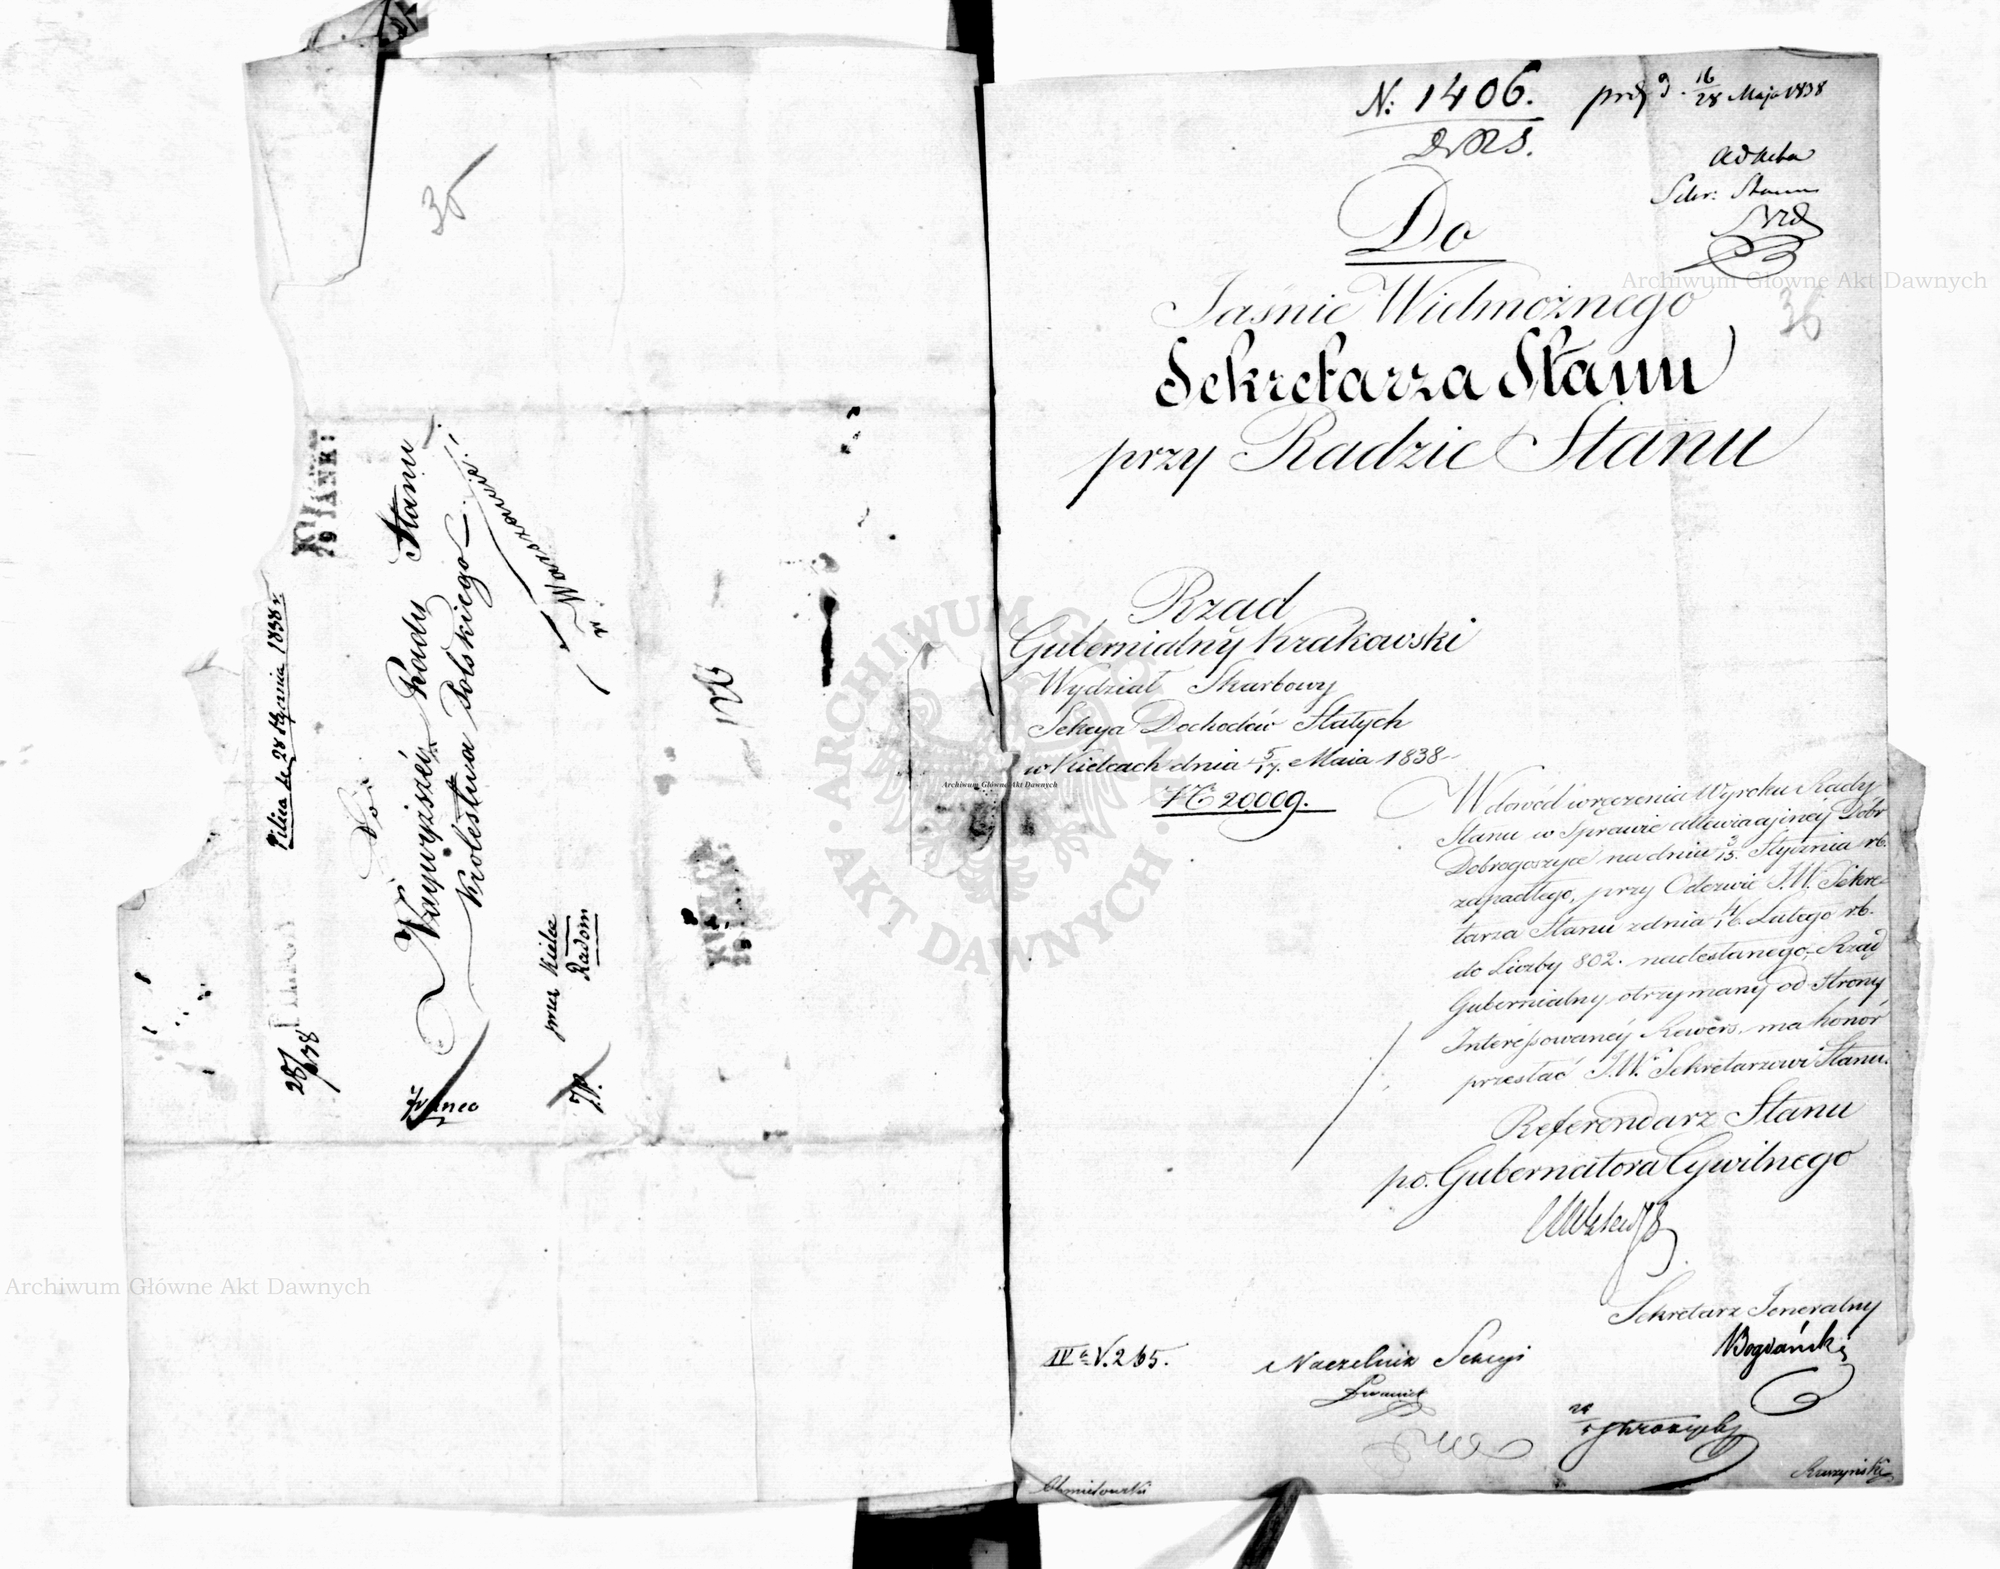 35
KIELCE
29 IANR:
Pilica de 28 Stycznia 1838 r.
Do
Najwyższéy Rady Stanu
Królestwa Polskiego
w Warszawie!
przez Kielce
Radom
28/1 838
PILICA
Franco
126
N: 1406.
D. 16/28 Maja 1838
Ad acta
Sekr: Stanu
36
Do
Jaśnie Wielmożnego
Sekretarza Stanu
przy Radzie Stanu
Rząd
Gubernialny Krakowski
Wydział Skarbowy
Sekcya Dochodów Stałych
w Kielcach dnia 5/17. Maia 1838
N 20009.
W dowód wręczenia Wyroku Rady
Stanu w Sprawie Dóbr
Dobrogoszyce na dniu 3/15. Stycznia rb.
zapadłego, przy Odezwie J.W. Sekre-
tarza Stanu z dnia 4/16. Lutego rb.
do Liczby 802. nadesłanego, Rząd
Gubernialny otrzymany od Strony
Interessowanéy Rewers, ma honor
przesłać J.W. Sekretarzowi Stanu.
Referendarz Stanu
p.o. Gubernatora Cywilnego
Sekretarz Jeneralny
Bogdański
IV V. 265.
Naczelnik Sekcyi
Chmielowski
Archiwum Główne Akt Dawnych
Archiwum Główne Akt Dawnych
Archiwum Główne Akt Dawnych
ARCHIWUM GŁÓWNE
AKT DAWNYCH